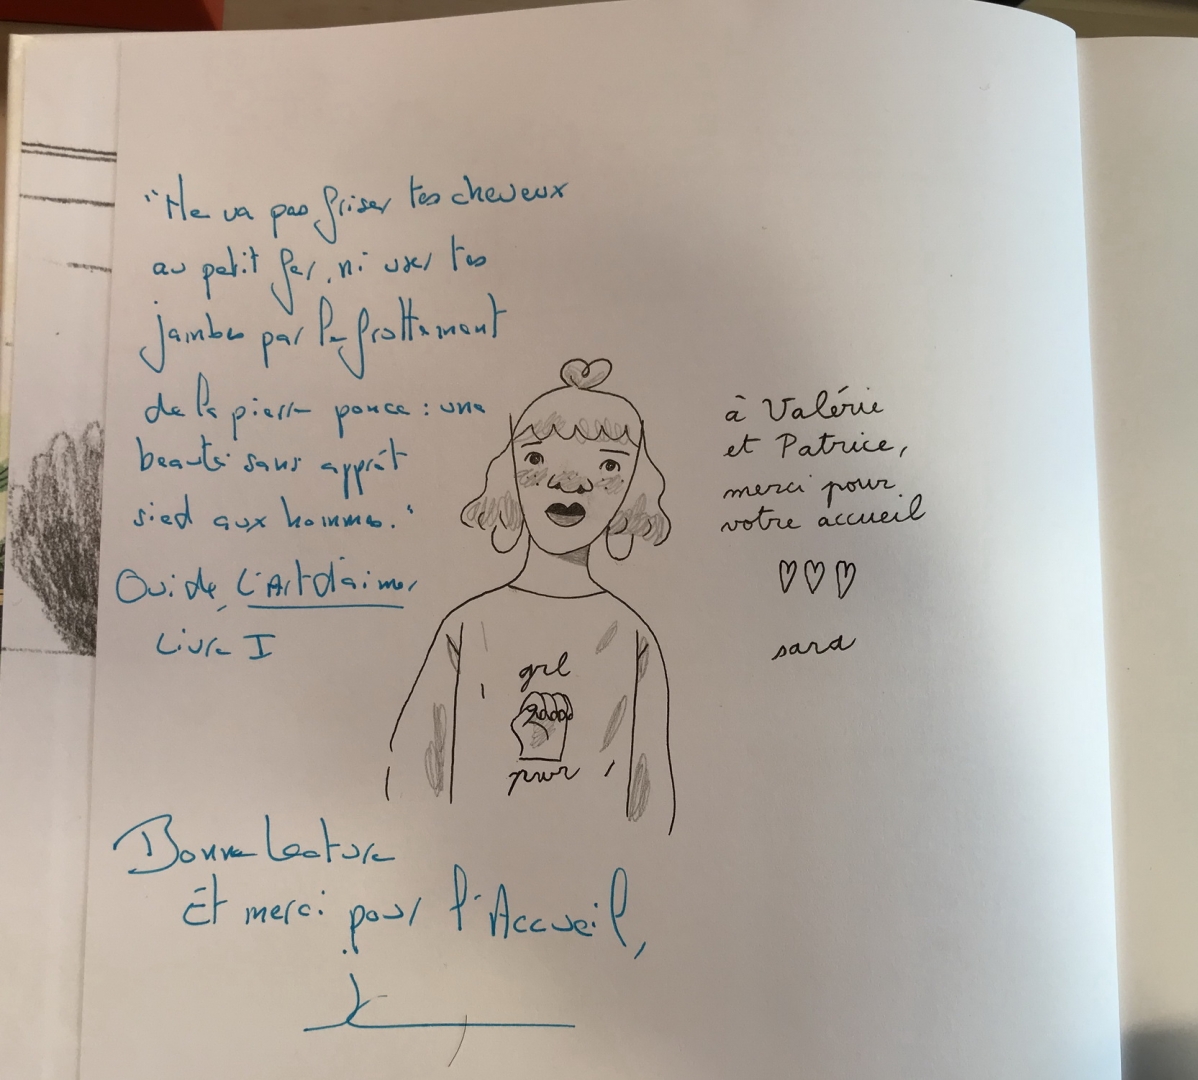 "Ne va pas friser tes cheveux
au petit fer, ni user tes
jambes par le frottement
de la pierre ponce : une
beauté sans apprêt
sied aux hommes."
Ovide, L'Art d'aimer
Livre I
à Valérie
et Patrice,
merci pour
votre accueil
sara
grl
pwr
Bonne Lecture
Et merci pour l'Accueil,